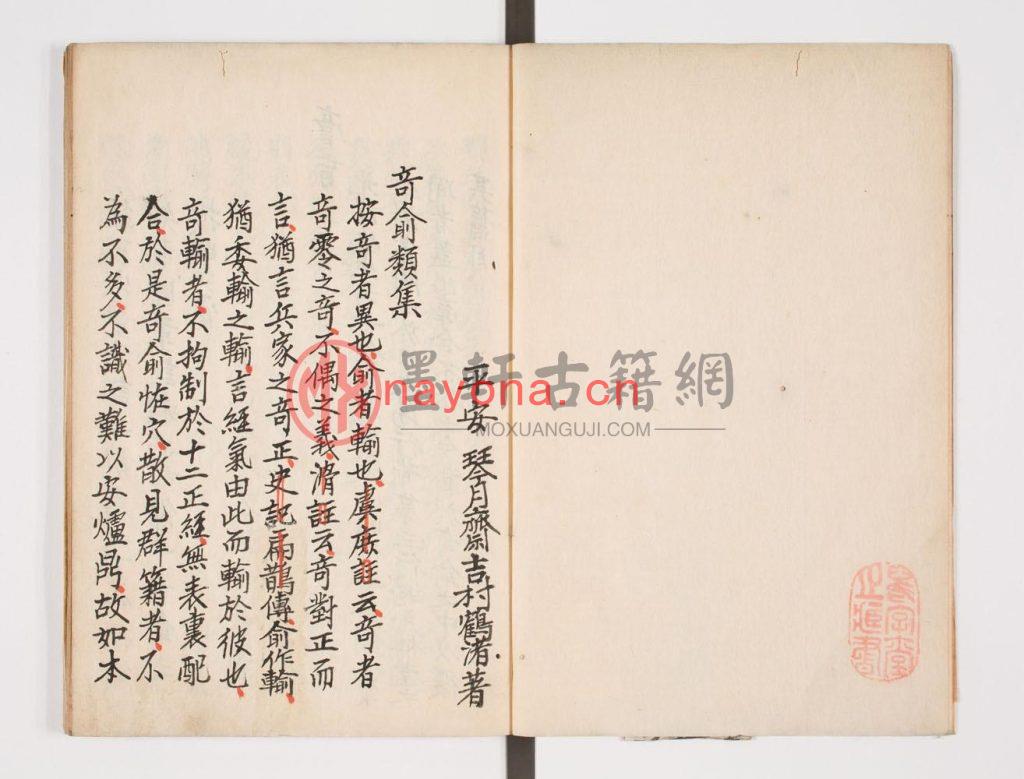 平安 琴月齋吉村鶴渚著
竒俞類集
按竒者異也俞者輸也虞庶註云竒者
竒零之竒不偶之義滑註云竒對正而
言猶言兵家之竒正史記扁鵲傳俞作輸
猶委輸之輸言經氣由此而輸於彼也
竒輸者不拘制於十二正經無表裏配
合於是竒俞恠穴散見群籍者不
為不多不識之難以安爐鼎故如本
墨軒古籍網
nayona.cn
MOXUANGUJI.COM